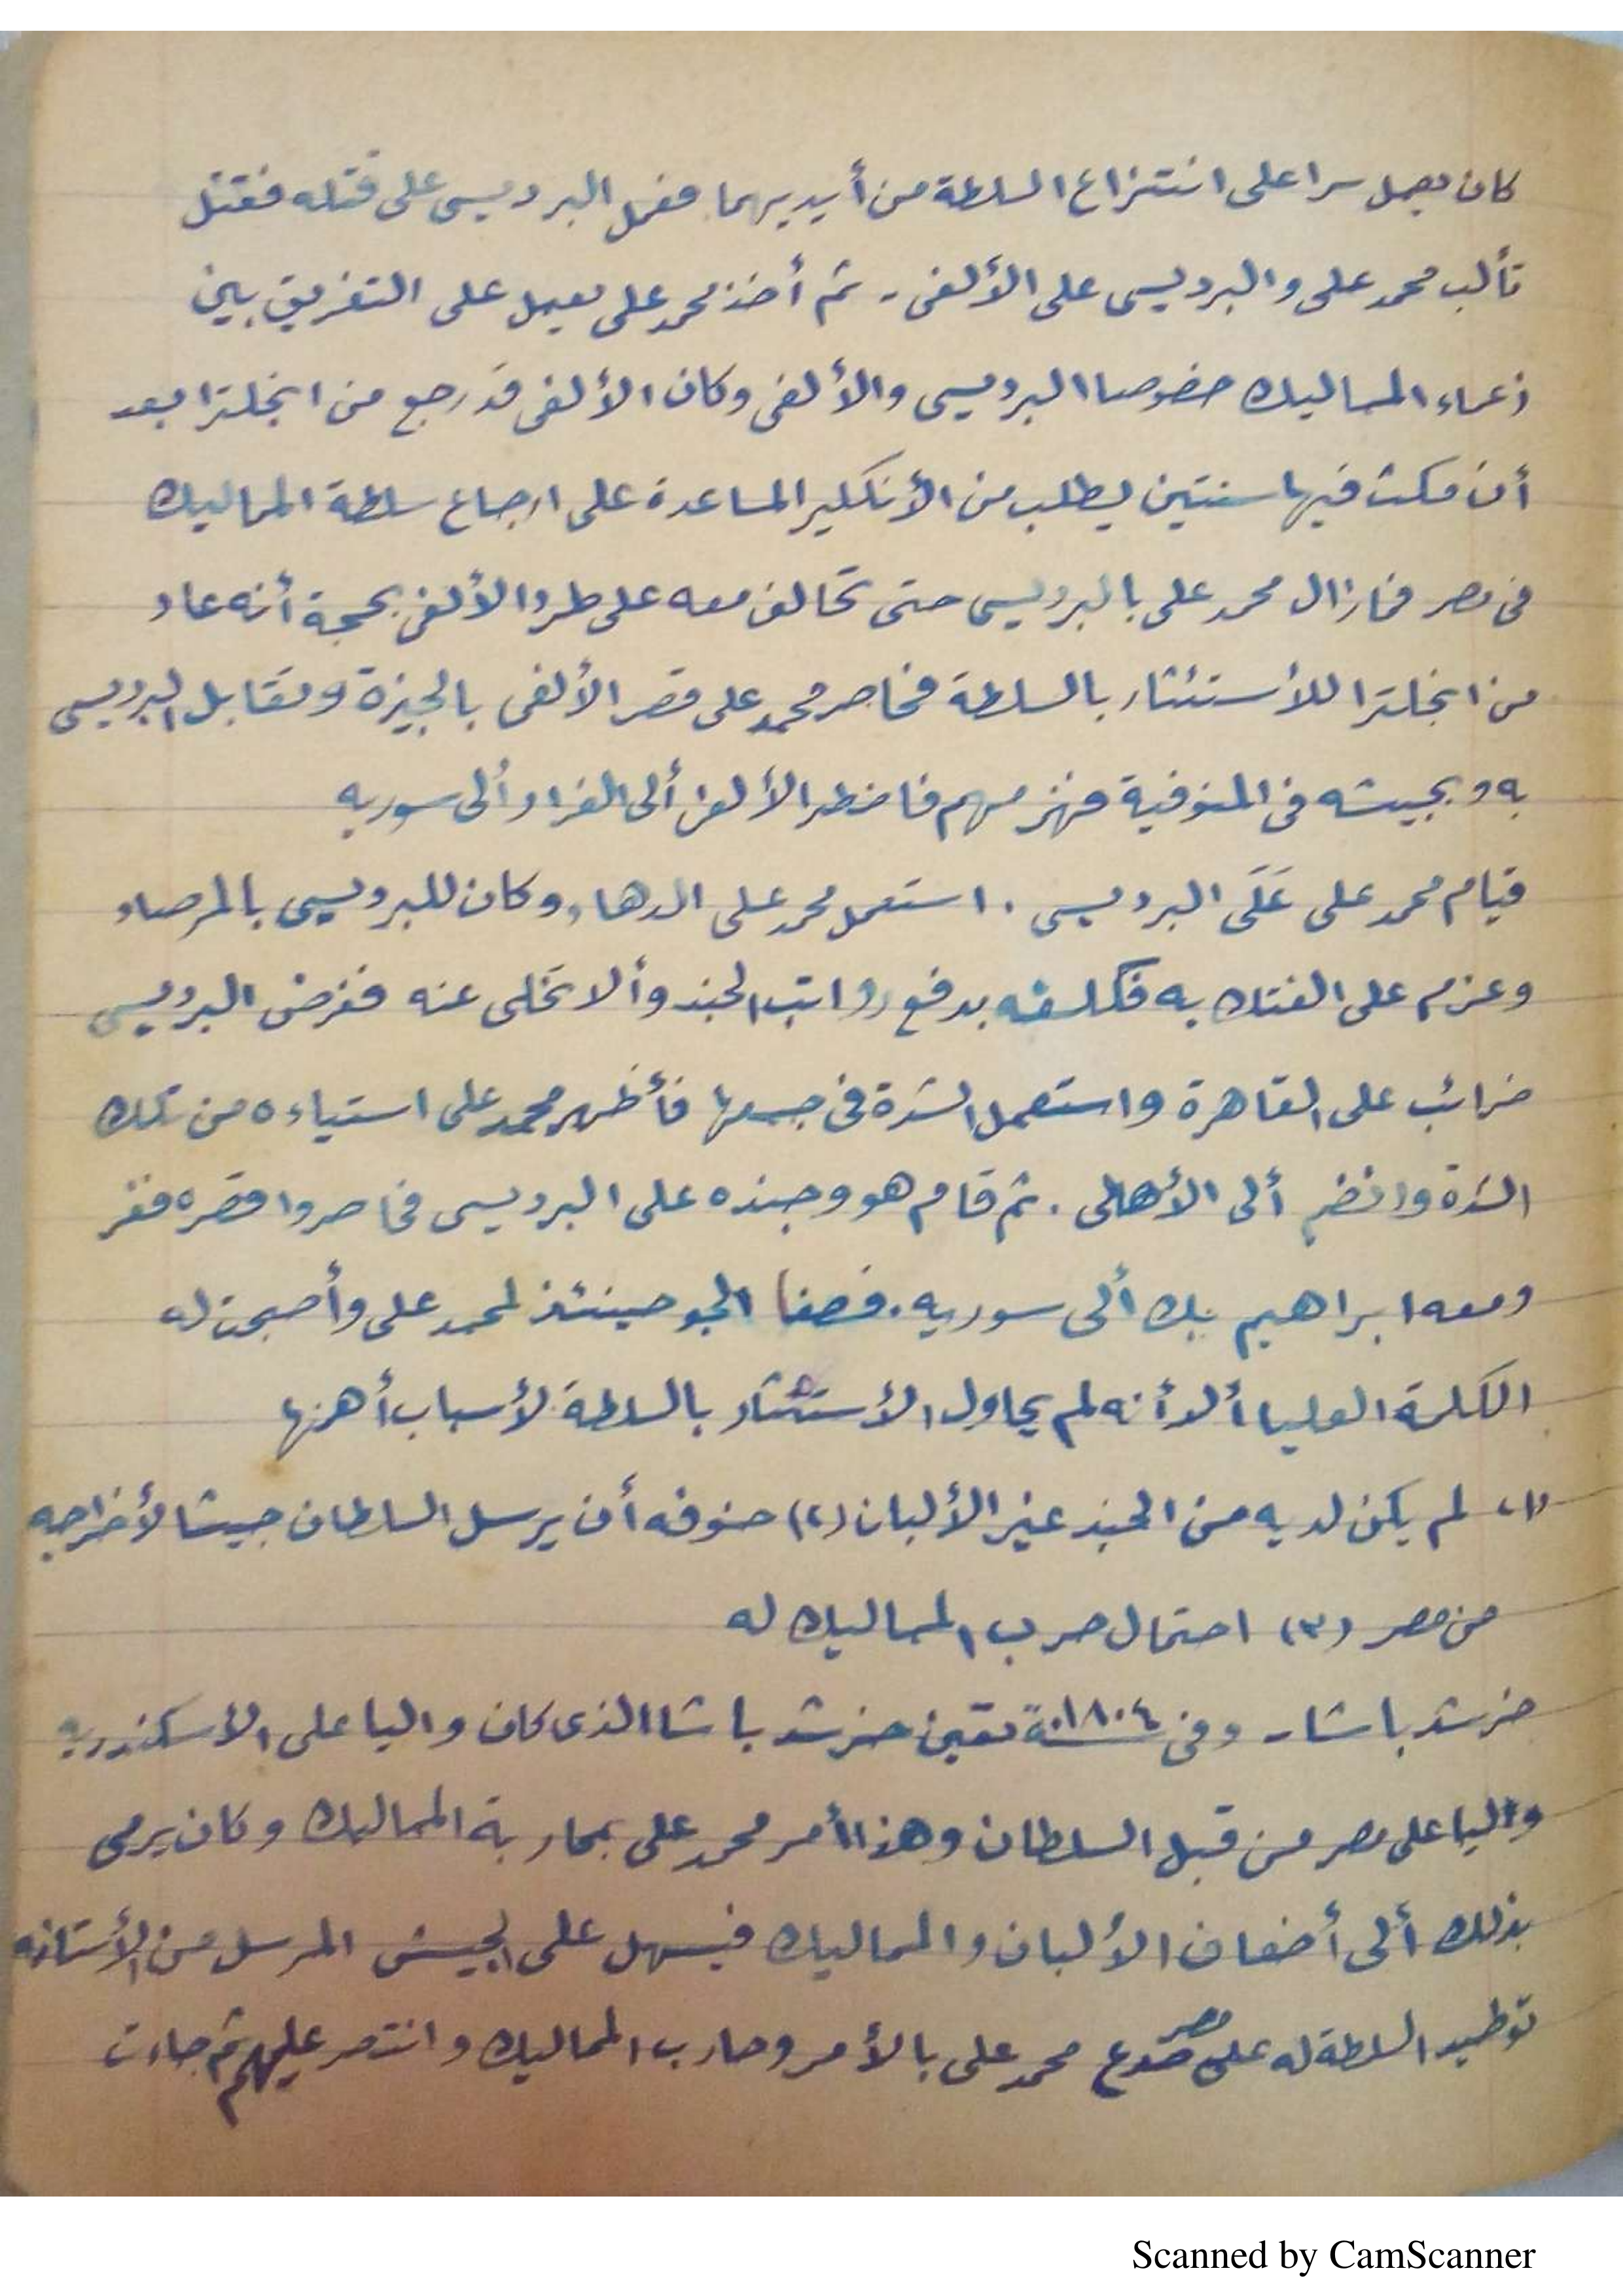 كان يعمل سرا على انتزاع السلطة من أيديهما فعمل البرديسى على قتله فقتل
تألب محمد على والبرديسى على الألفى - ثم أخذ محمد على يعمل على التفريق بين
زعماء المماليك خصوصا البرديسى والألفى وكان الألفى قد رجع من انجلترا بعد
أن مكث فيها سنتين يطلب من الأنكليز المساعدة على ارجاع سلطة المماليك
فى مصر فمازال محمد على بالبرديسى حتى تحالف معه على طرد الألفى بحجة أنه عاد
من انجلترا للأستئثار بالسلطة فحاصر محمد على قصر الألفى بالجيزة وتقابل البرديسى
به وبجيشه فى المنوفية فهزمهم فاضطر الألفى ألى الفرار ألى سوريه
قيام محمد على عَلَى البرديسى . استعمل محمد على الدهاء وكان للبرديسى بالمرصاد
وعزم على الفتك به فكلفه بدفع رواتب الجند وألا تخلى عنه ففرض البرديسى
ضرائب على القاهرة واستعمل الشدة فى جمعها فأظهر محمد على استياءه من تلك
الشدة وانضم ألى الأهالى . ثم قام هو وجنده على البرديسى فحاصروا قصره ففر
ومعه ابراهيم بك ألى سوريه . فصفا الجو حينئذ لمحمد على وأصبحت له
الكلمة العليا ألا أنه لم يحاول الأستئثار بالسلطة لأسباب أهمها
(١) لم يكن لديه من الجند غير الألبان (٢) خوفه أن يرسل السلطان جيشا لأخراجه
من مصر (٣) احتمال حرب المماليك له
خرشد باشا - وفى سنة ١٨٠٤ تعين خرشد باشا الذى كان واليا على الأسكندريه
واليا على مصر من قبل السلطان وهذا أمر محمد على بمحاربة المماليك وكان يرمى
بذلك ألى أضعاف الألبان والمماليك فيسهل على الجيش المرسل من الأستانه
توطيد السلطة له على مصر فصدع محمد على بالأمر وحارب المماليك وانتصر عليهم ثم جاءت
Scanned by CamScanner